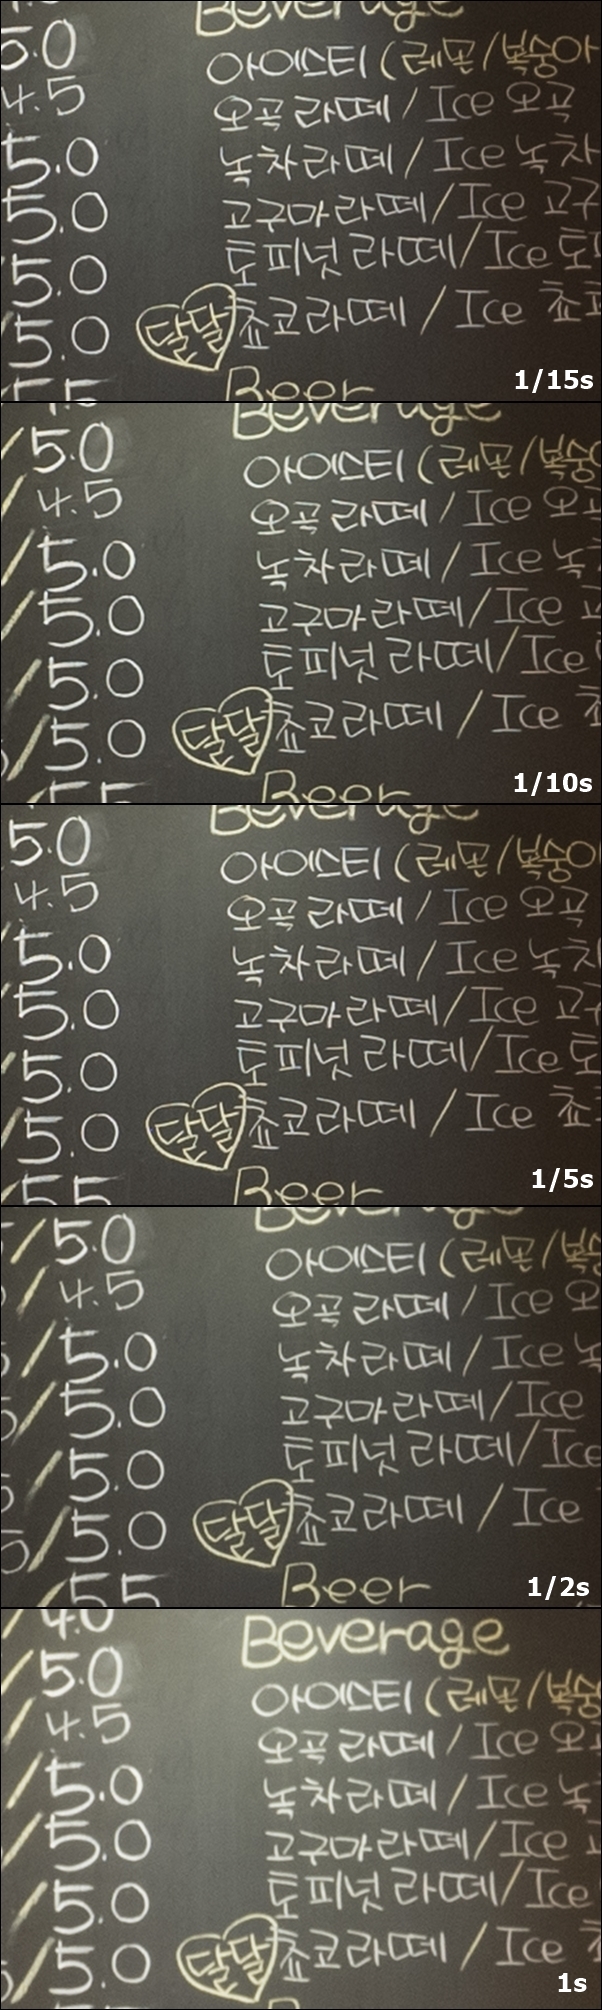 5.0 Beverage
4.5 아이스티 (레몬/복숭아
5.0 오곡라떼 / Ice 오곡
5.0 녹차라떼 / Ice 녹차
5.0 고구마라떼/Ice 고구
5.0 토피넛 라떼/Ice 토
달달 쵸코라떼 / Ice 쵸
Beer
1/15s
Beverage
/5.0 아이스티 (레몬/복숭
4.5 오곡라떼 / Ice 오
/5.0 녹차라떼 / Ice 녹
/5.0 고구마라떼/Ice
/5.0 토피넛 라떼/Ice
/5.0 달달 쵸코라떼 / Ice
Beer
1/10s
Beverage
5.0 아이스티 (레몬/복숭아
4.5 오곡라떼 / Ice 오곡
5.0 녹차라떼 / Ice 녹차
5.0 고구마라떼/Ice 고구
5.0 토피넛 라떼/Ice 토
5.0 달달 쵸코라떼 / Ice 쵸
55 Beer
1/5s
/5.0 아이스티 (레몬/복숭
/4.5 오곡라떼 / Ice 오
/5.0 녹차라떼 / Ice 녹
/5.0 고구마라떼/Ice
/5.0 토피넛 라떼/Ice
/5.0 달달 쵸코라떼 / Ice
/55 Beer
1/2s
4.0 Beverage
/5.0 아이스티 (레몬/복숭
/4.5 오곡라떼 / Ice 오
/5.0 녹차라떼 / Ice 녹
/5.0 고구마라떼/Ice
/5.0 토피넛 라떼/Ice
/5.0 달달 쵸코라떼 / Ice
1s